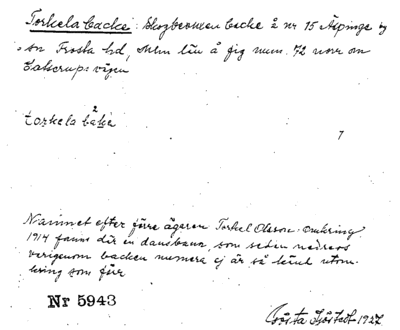 Torkela backe: Skogbevuxen backe å nr 15 Äspinge by
sn Frosta hd, Mlm län å fig num. 72 norr om
vägen
torkela bake
2
7
Namnet efter förre ägaren Torkel Olsson. Omkring
1914 fanns där en dansbana, som sedan nedrevs
varigenom backen numera ej är så känd utom-
kring som förr
Nr 5943
Gösta Sjöstedt 1927